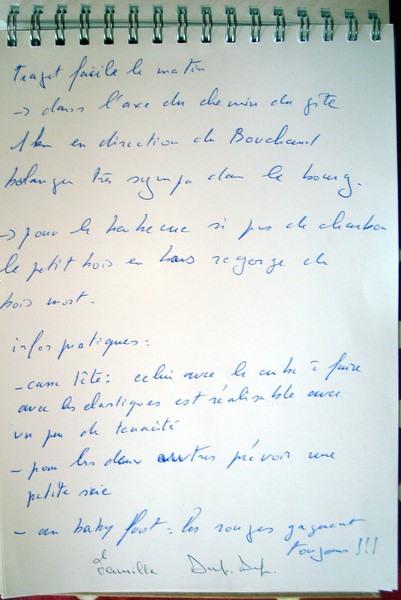 Trajet facile le matin
→ dans l'axe du chemin du gîte
1 km en direction de Bouchaud
boulanger très sympa dans le bourg.
→ pour le barbecue si pas de charbon
le petit bois en bas regorge de
bois mort.
infos pratiques:
- casse tête: celui avec le cube à faire
avec les élastiques est réalisable avec
un peu de tenacité
- pour les deux autres prévoir une
petite scie
- au baby foot: les rouges gagnent
toujours !!!
et famille